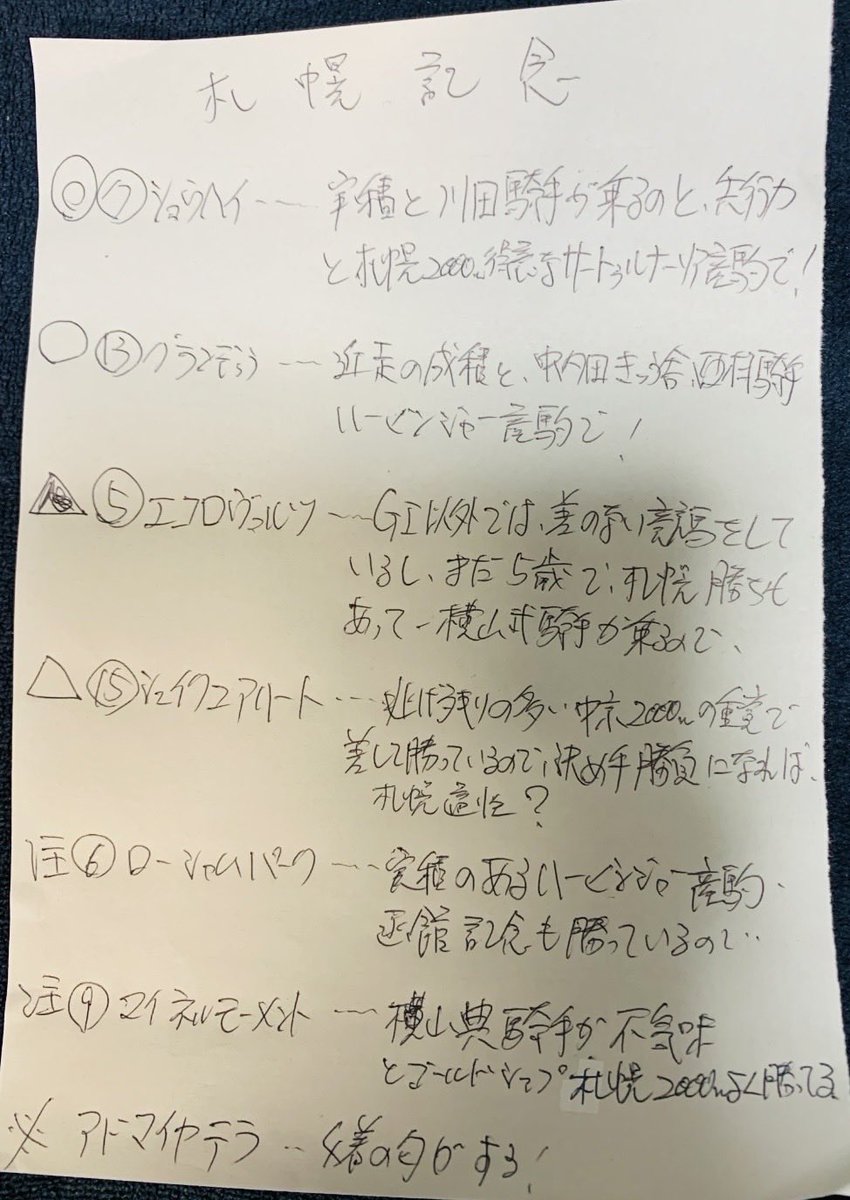 札幌記念
◎⑦ショウヘイ……実積と川田騎手が乗るのと、先行力
と札幌2000m得意なサートゥルナーリア産駒で!
○⑬グランディア……近走の成積と、中内田きゅう舎、西村騎手
ハービンジャー産駒で!
▲⑤エコロヴァルツ……GI以外では、差のない競馬をして
いるし、まだ5歳で、札幌勝ちも
あって、横山武騎手が乗るので、
△⑮シェイクユアハート……逃げ残りの多い中京2000mの重賞で
差して勝っているので、決め手勝負になれば、
札幌適性?
注⑥ローシャムパーク……実積のあるハービンジャー産駒、
函館記念も勝っているので..
注⑨マイネルモーメント……横山典騎手が不気味
とゴールドシップ札幌2000mよく勝ってる
※アドマイヤテラ……の匂がする!